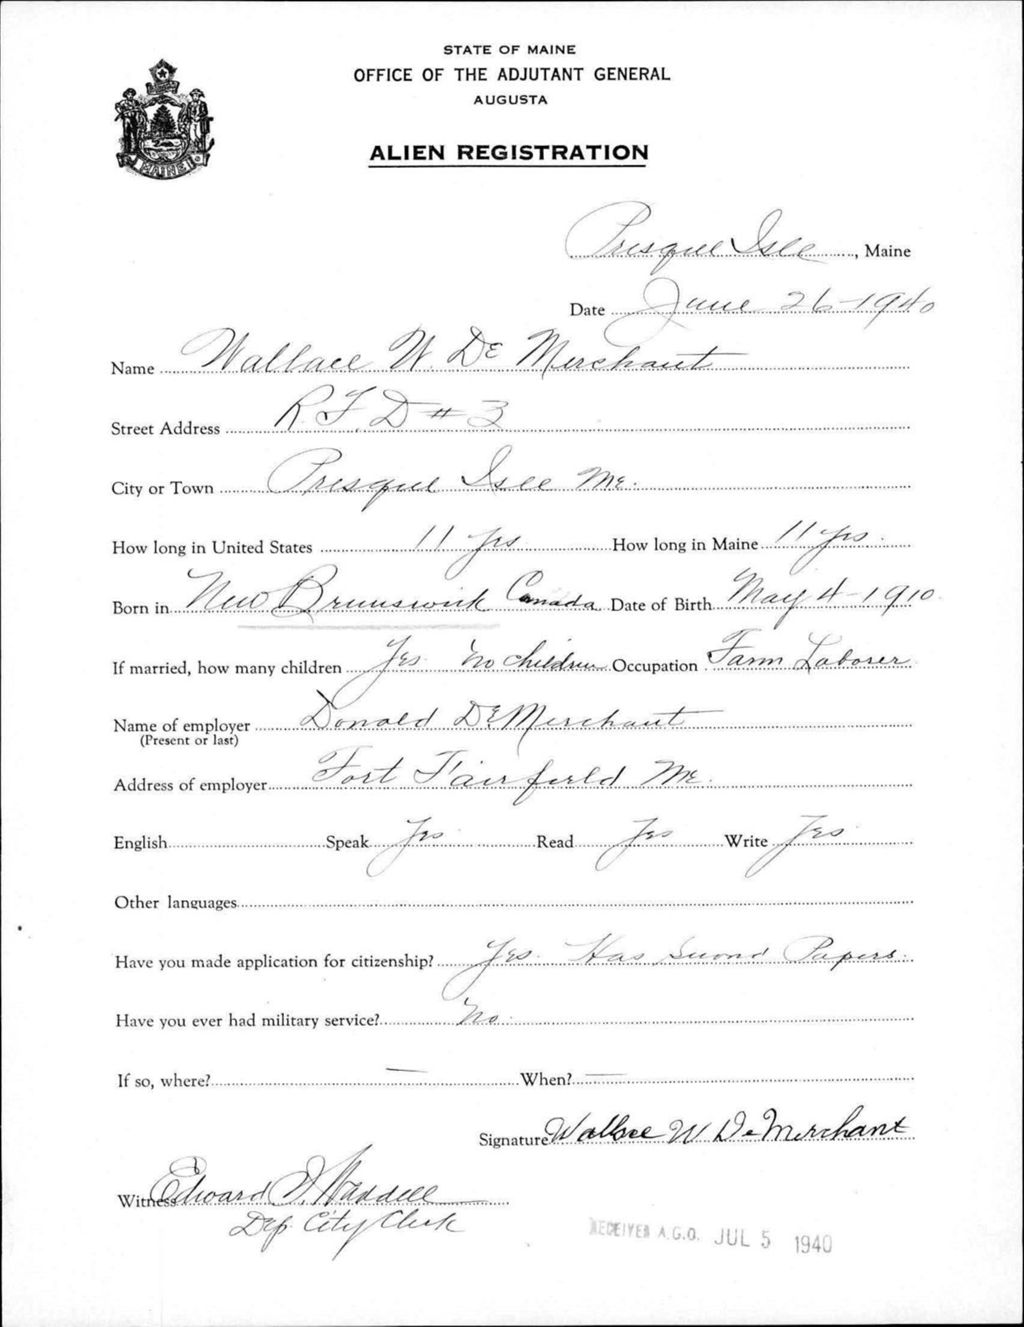 STATE OF MAINE
OFFICE OF THE ADJUTANT GENERAL
AUGUSTA
ALIEN REGISTRATION
MAINE
Presque Isle, Maine
Date June 26-1940
Name Wallace W. De Merchant
Street Address R.F.D # 3
City or Town Presque Isle Me.
How long in United States 11 yrs How long in Maine 11 yrs.
Born in New Brunswick Canada Date of Birth May 4-1910
If married, how many children Yes No children Occupation Farm Laborer
Name of employer Donald De Merchant
(Present or last)
Address of employer Fort Fairfield Me.
English Speak Yes Read Yes Write Yes
Other languages
Have you made application for citizenship? Yes. Has Second Papers.
Have you ever had military service? No.
If so, where? — When? —
Signature Wallace W DeMerchant
Witness Edward I. Waddell
Dep. City Clerk
RECEIVED A.G.O. JUL 5 1940